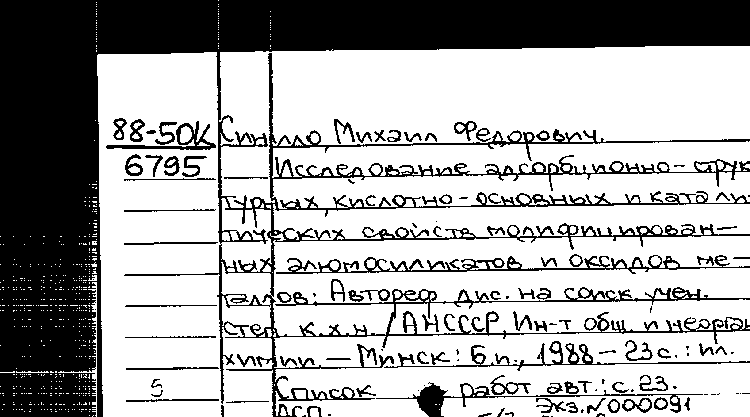 88-50К Синилло, Михаил Федорович.
6795 Исследование адсорбционно-струк
турных, кислотно-основных и катали-
тических свойств модифицирован-
ных алюмосиликатов и оксидов ме-
таллов: Автореф. дис. на соиск. учен.
степ. к.х.н. / АН СССР, Ин-т общ. и неорган
химии. — Минск: Б.и., 1988. — 23 с.: ил.
5 Список работ авт.: с. 23.
Экз. N 000091